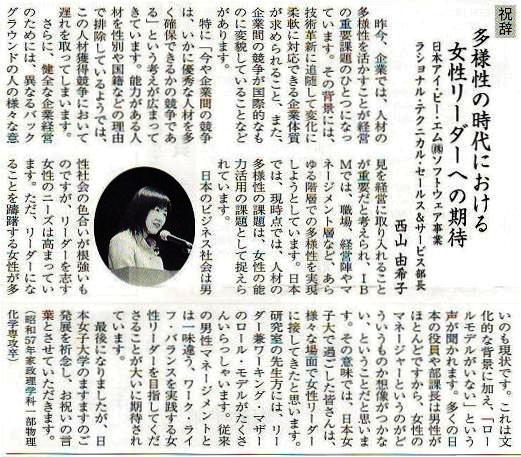 祝辞
多様性の時代における
女性リーダーへの期待
日本アイ・ビー・エム㈱ソフトウェア事業
ラショナル・テクニカル・セールス&サービス部長
西山 由希子
昨今、企業では、人材の
多様性を活かすことが経営
の重要課題のひとつになっ
ています。その背景には、
技術革新に追随して変化に
柔軟に対応できる企業体質
が求められること、また、
企業間の競争が国際的なも
のに変貌していることなど
があります。
特に「今や企業間の競争
は、いかに優秀な人材を多
く確保できるかの競争であ
る」という考えが広まって
きています。能力がある人
材を性別や国籍などの理由
で排除しているようでは、
この人材獲得競争において
遅れを取ってしまいます。
さらに、健全な企業経営
のためには、異なるバック
グラウンドの人の様々な意
見を経営に取り入れること
が重要だと考えられ、IB
Mでは、職場、経営陣やマ
ネージメント層など、あら
ゆる階層での多様性を実現
しようとしています。日本
では、現時点では、人材の
多様性の課題は、女性の能
力活用の課題として捉えら
れています。
日本のビジネス社会は男
性社会の色合いが根強いも
のですが、リーダーを志す
女性のニーズは高まってい
ます。ただ、リーダーにな
ることを躊躇する女性が多
いのも現状です。これは文
化的な背景に加え、「ロー
ルモデルがいない」という
声が聞かれます。多くの日
本の役員や部課長は男性が
ほとんどですから、女性の
マネージャーというのがど
ういうものか想像がつかな
い、ということだと思いま
す。その意味では、日本女
子大で過ごした皆さんは、
様々な場面で女性リーダー
に接してきたと思います。
研究室の先生方には、リー
ダー兼ワーキング・マザー
のロール・モデルがたくさ
んいらっしゃいます。従来
の男性マネージメントと
は一味違う、ワーク・ライ
フ・バランスを実践する女
性リーダーを目指してくだ
さることが大いに期待され
ています。
最後になりましたが、日
本女子大学のますますのご
発展を祈念し、お祝いの言
葉とさせていただきます。
(昭和57年家政理学科一部物理
化学専攻卒)